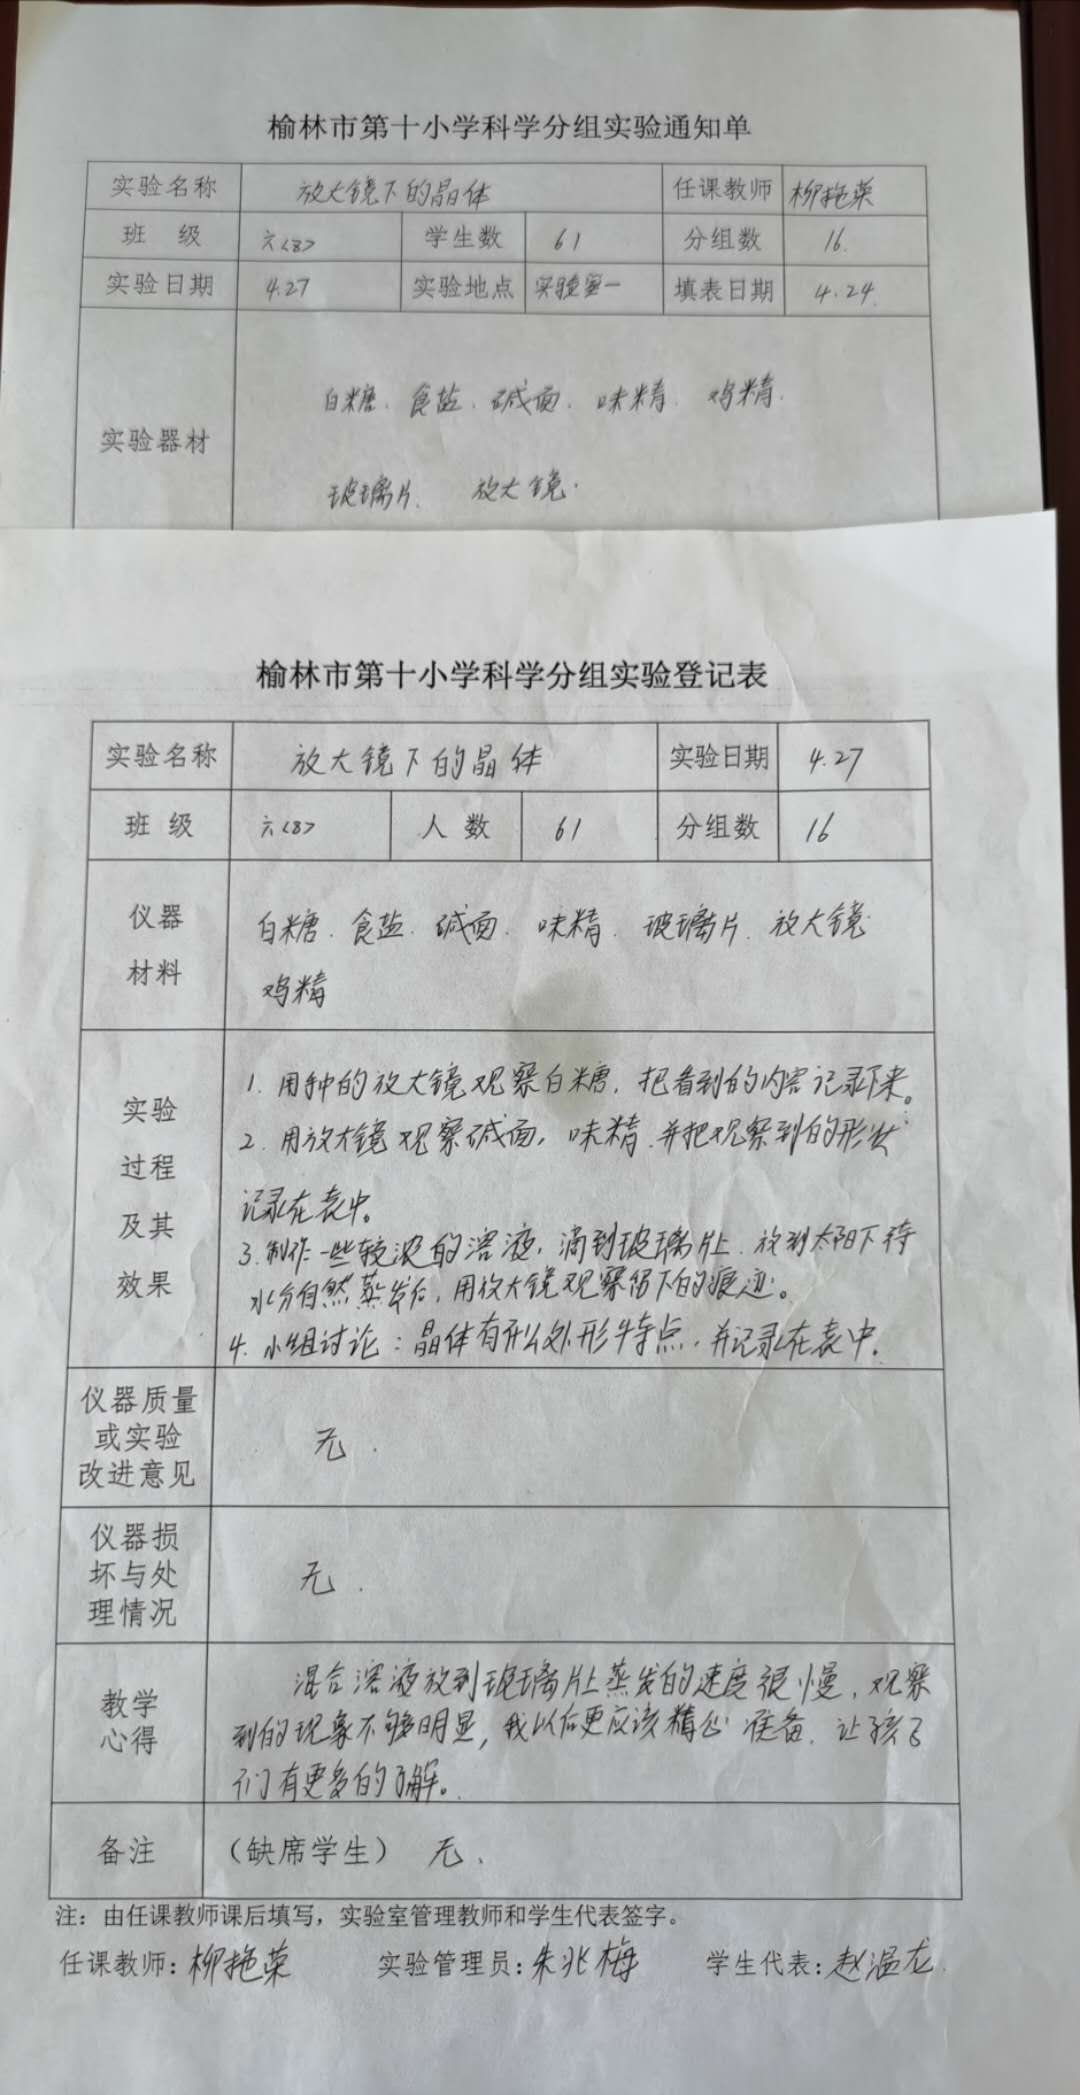 榆林市第十小学科学分组实验通知单
实验名称 放大镜下的晶体 任课教师 柳艳荣
班 级 六<8> 学生数 61 分组数 16.
实验日期 4.27 实验地点 实验室一 填表日期 4.24.
白糖、食盐、碱面、味精、鸡精.
实验器材
玻璃片、 放大镜.
榆林市第十小学科学分组实验登记表
实验名称 放大镜下的晶体 实验日期 4.27
班 级 六<8> 人 数 61 分组数 16
仪器
材料
白糖、食盐、碱面、味精、玻璃片、放大镜
鸡精
实验
过程
及其
效果
1. 用 的放大镜观察白糖，把看到的内容记录下来。
2. 用放大镜观察碱面，味精，并把观察到的形状
记录在表中。
3. 制作一些较浓的溶液，滴到玻璃片上，放到太阳下待
水分自然蒸发后，用放大镜观察留下的痕迹。
4. 小组讨论：晶体有什么外形特点，并记录在表中.
仪器质量
或实验
改进意见
无.
仪器损
坏与处
理情况
无.
教学
心得
混合溶液放到玻璃片上蒸发的速度很慢，观察
到的现象不够明显，我以后更应该精心准备，让孩子
们有更多的了解。
备注 （缺席学生） 无.
注：由任课教师课后填写，实验室管理教师和学生代表签字。
任课教师：柳 荣 实验管理员：朱兆梅 学生代表：赵温龙